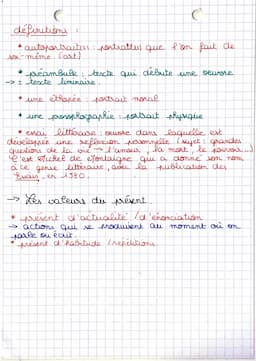 définitions :
* autoportraits : portraits que l'on fait de
soi-même (art)
* préambule : texte qui débute une oeuvre
→ : texte liminaire
* une éthopée : portrait moral
* une prosopographie : portrait physique
* essai littéraire : oeuvre dans laquelle est
développée une réflexion personnelle (sujet : grandes
questions de la vie → l'amour, la mort, le pouvoir...)
C'est Michel de Montaigne qui a donné son nom
à ce genre littéraire, avec la publication des
Essais, en 1580.
→ Les valeurs du présent.
* présent d'actualité / d'énonciation
→ actions qui se produisent au moment où on
parle ou écrit.
* présent d'habitude / répétitions